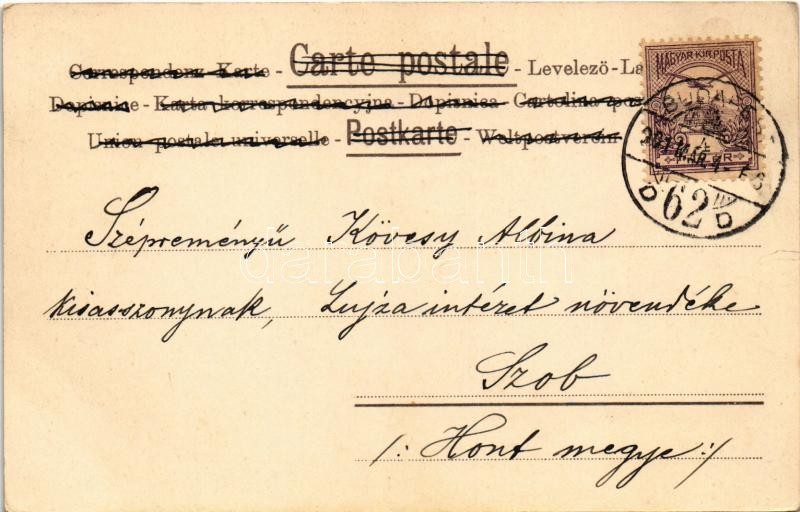 Correspondenz-Karte - Carte postale - Levelező-La
Dopisnice - Karta korrespondencyjna - Dopisnica - Cartolina pos
Union postale universelle - Postkarte - Weltpostverein
MAGYAR KIR. POSTA
62
D D
Szépreményű Kövesy Albina
kisasszonynak, Lujza intézet növendéke
Szob
/: Hont megye :/
darabanth